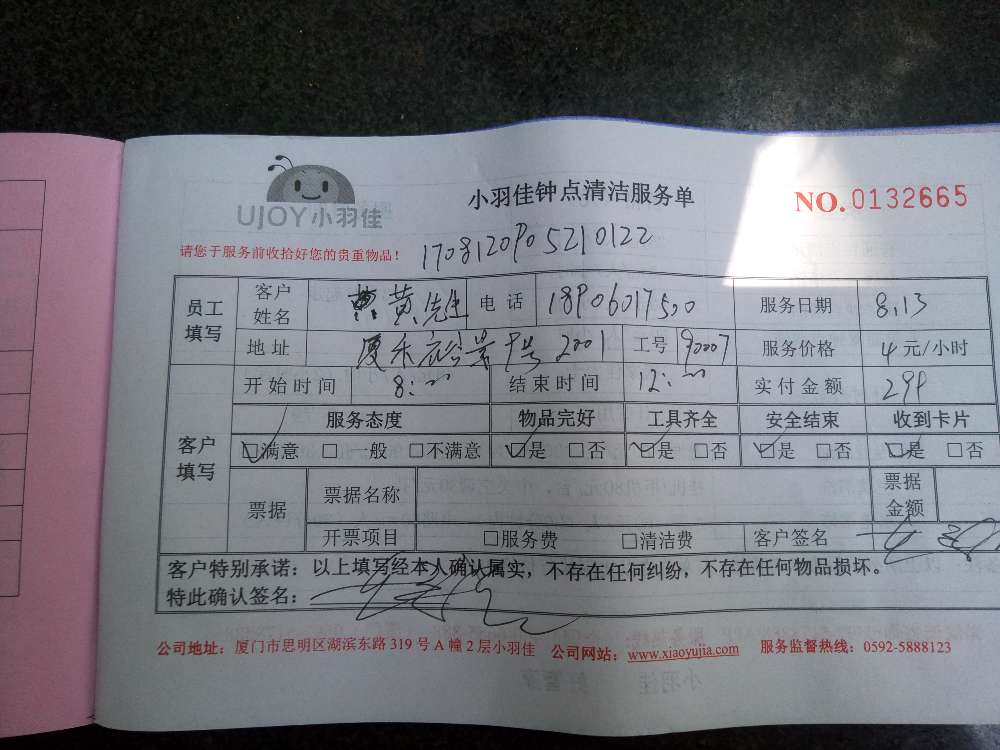 UJOY小羽佳
小羽佳钟点清洁服务单
NO.0132665
请您于服务前收拾好您的贵重物品！
员工填写 客户姓名 黄先生 电话 服务日期 8.13
地址 2001 工号 90007 服务价格 4 元/小时
客户填写 开始时间 8: 结束时间 12: 实付金额
服务态度 物品完好 工具齐全 安全结束 收到卡片
☑满意 □一般 □不满意 ☑是 □否 ☑是 □否 ☑是 □否 ☑是 □否
票据 票据名称 票据金额
开票项目 □服务费 □清洁费 客户签名
客户特别承诺：以上填写经本人确认属实，不存在任何纠纷，不存在任何物品损坏。
特此确认签名：
公司地址：厦门市思明区湖滨东路 319 号 A 幢 2 层小羽佳 公司网站：www.xiaoyujia.com 服务监督热线：0592-5888123